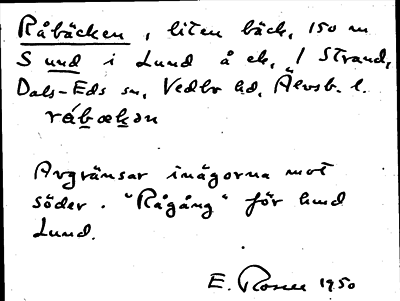 Råbäcken, liten bäck, 150 m
S und i Lund å ek, 1/ Strand,
Dals-Eds sn, Vedbo hd, Älvsb. l.
rábækən
Avgränsar inägorna mot
söder. "Rågång" för hmd
Lund.
E. Rosell 1950